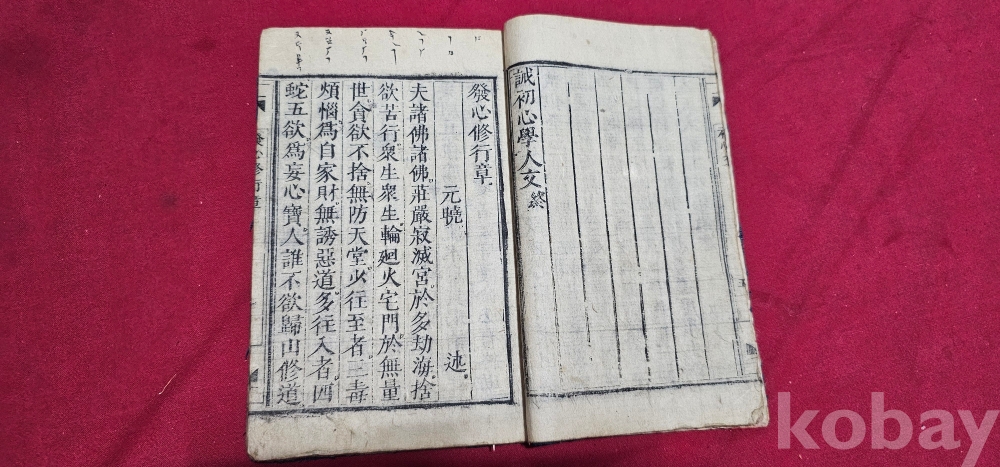 誡初心學人文 終
發心修行章
元曉 述
夫諸佛諸佛莊嚴寂滅宮於多劫海捨
欲苦行衆生衆生輪廻火宅門於無量
世貪欲不捨無防天堂少往至者三毒
煩惱爲自家財無誘惡道多往入者四
蛇五欲爲妄心寶人誰不欲歸山修道
發心修行章
kobay